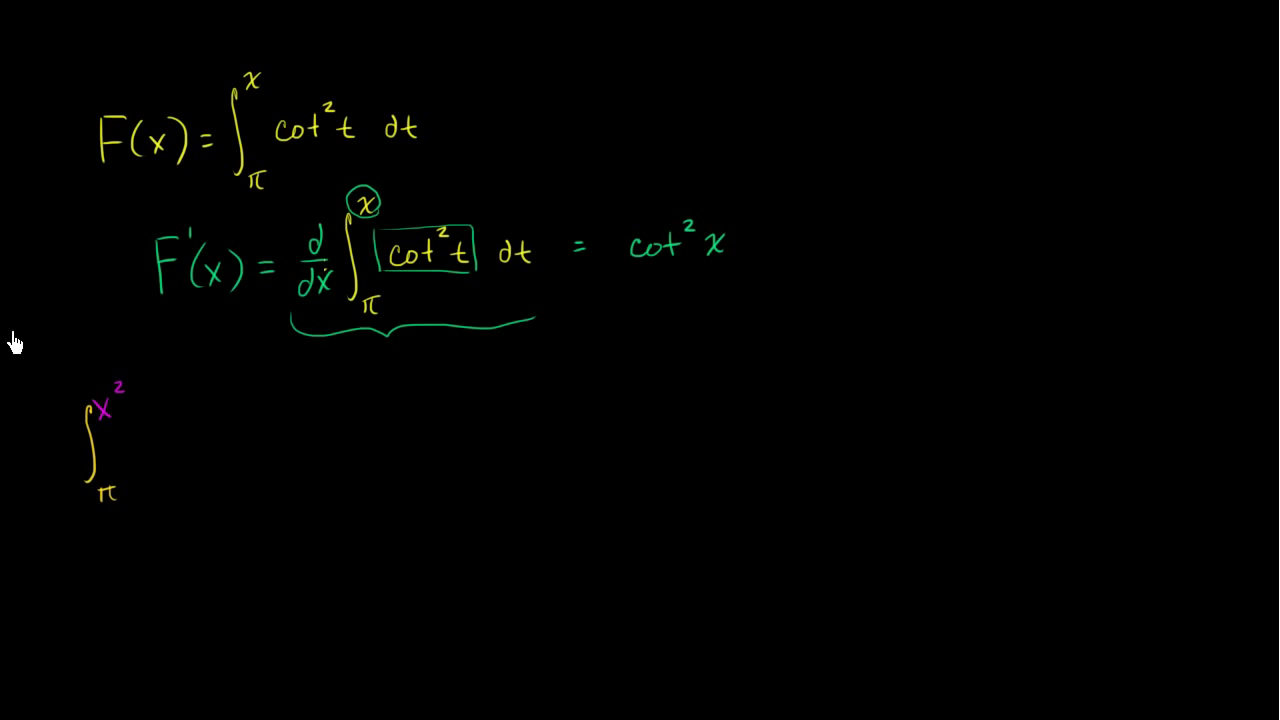 F(x) = ∫_π^x cot² t dt
F'(x) = d/dx ∫_π^x cot² t dt = cot² x
∫_π^x²